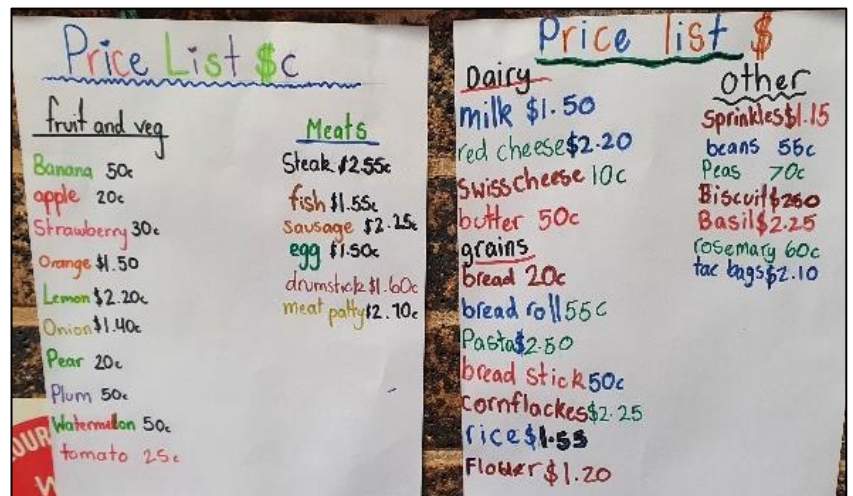 Price List $c
fruit and veg
Banana 50c
apple 20c
Strawberry 30c
Orange $1.50
Lemon $2.20c
Onion $1.40c
Pear 20c
Plum 50c
Watermelon 50c
tomato 25c
Meats
Steak $2.55c
fish $1.55c
sausage $2.25c
egg $1.50c
drumstick $1.60c
meat patty $2.70c
Price list $
Dairy
milk $1.50
red cheese $2.20
Swiss cheese 10c
butter 50c
grains
bread 20c
bread roll 55c
Pasta $2.50
bread stick 50c
cornflackes $2.25
rice $1.55
Flower $1.20
other
Sprinkles $1.15
beans 55c
Peas 70c
Biscuit $2.50
Basil $2.25
rosemary 60c
tac bags $2.10
OUR
W